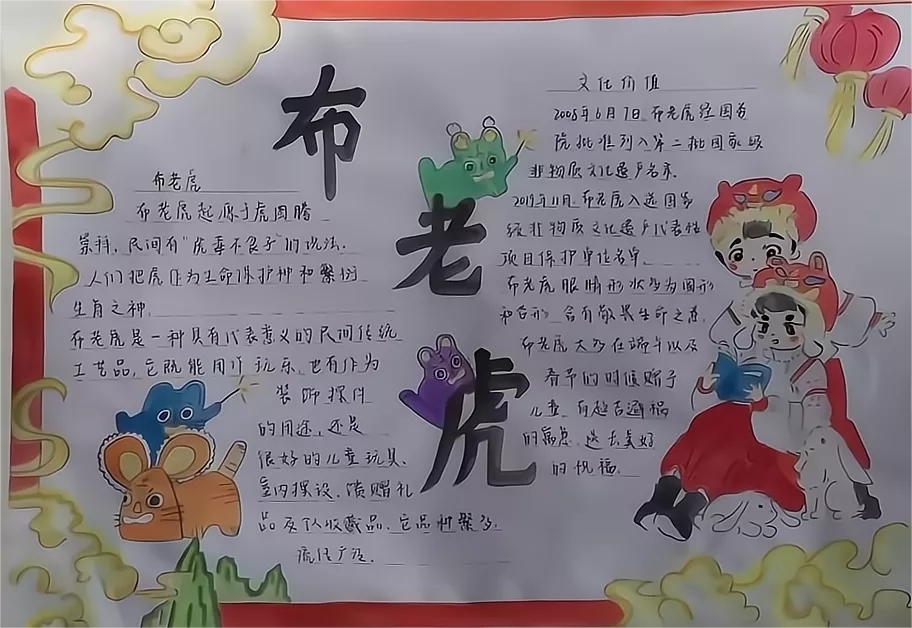 布老虎
布老虎
布老虎起源于虎图腾
崇拜，民间有“虎毒不食子”的说法。
人们把虎作为生命保护神和繁衍
生育之神。
布老虎是一种具有代表意义的民间传统
工艺品，它既能用作玩乐，也有作为
装饰摆件
的用途，还是
很好的儿童玩具、
室内摆设、馈赠礼
品及个人收藏品，它品种繁多，
流传广泛。
文化价值
2008年6月7日布老虎经国务
院批准列入第二批国家级
非物质文化遗产名录。
2019年11月，布老虎入选国家
级非物质文化遗产代表性
项目保护单位名单。
布老虎眼睛形状多为圆形
和杏形，含有敬畏生命之意。
布老虎大多在端午以及
春节的时候赠予
儿童，有趋吉避祸
的寓意，送去美好
的祝福。